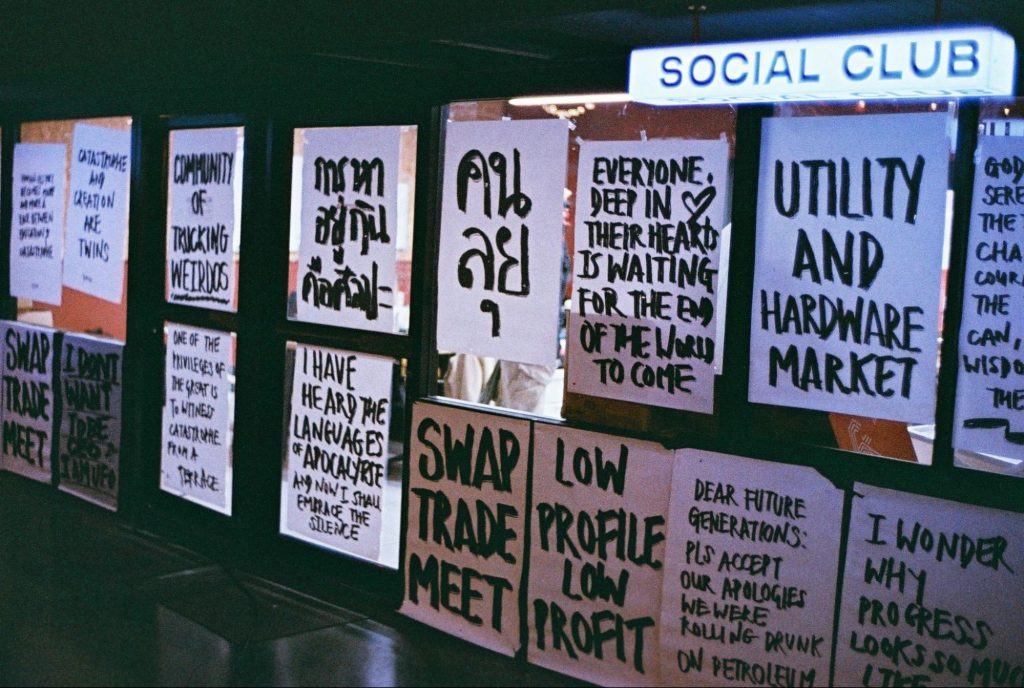 SOCIAL CLUB
BECOMES MORE
AND MORE A
RACE BETWEEN
CATASTROPHE
CATASTROPHE
AND
CREATION
ARE
TWINS
COMMUNITY
OF
TRUCKING
WEIRDOS
การหา
อยู่กิน
คือศิลปะ
คน
ลุย
EVERYONE,
DEEP IN
THEIR HEARTS
IS WAITING
FOR THE END
OF THE WORLD
TO COME
UTILITY
AND
HARDWARE
MARKET
GOD
SERE
THE T
CHA
COURA
THE
CAN,
WISDO
THE
SWAP
TRADE
MEET
I DON'T
WANT
TO BE
CEO
I AM UFO
ONE OF THE
PRIVILEGES OF
THE GREAT IS
TO WITNESS
CATASTROPHE
FROM A
TERRACE
I HAVE
HEARD THE
LANGUAGES
OF APOCALYPSE
AND NOW I SHALL
EMBRACE THE
SILENCE
SWAP
TRADE
MEET
LOW
PROFILE
LOW
PROFIT
DEAR FUTURE
GENERATIONS:
PLS ACCEPT
OUR APOLOGIES
WE WERE
ROLLING DRUNK
ON PETROLEUM
I WONDER
WHY
PROGRESS
LOOKS SO MUCH
LIKE